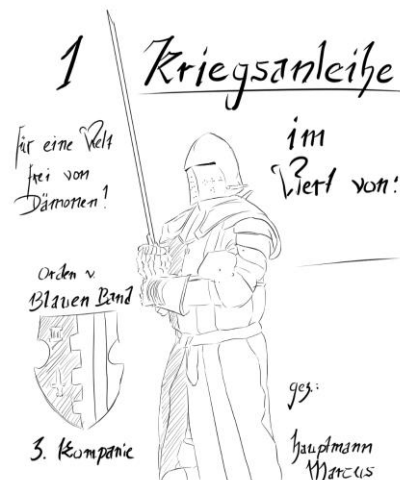 1 Kriegsanleihe
im
Wert von:
für eine Welt
frei von
Dämonen!
Orden v.
Blauen Band
3. Kompanie
gez.:
Hauptmann
Marcus